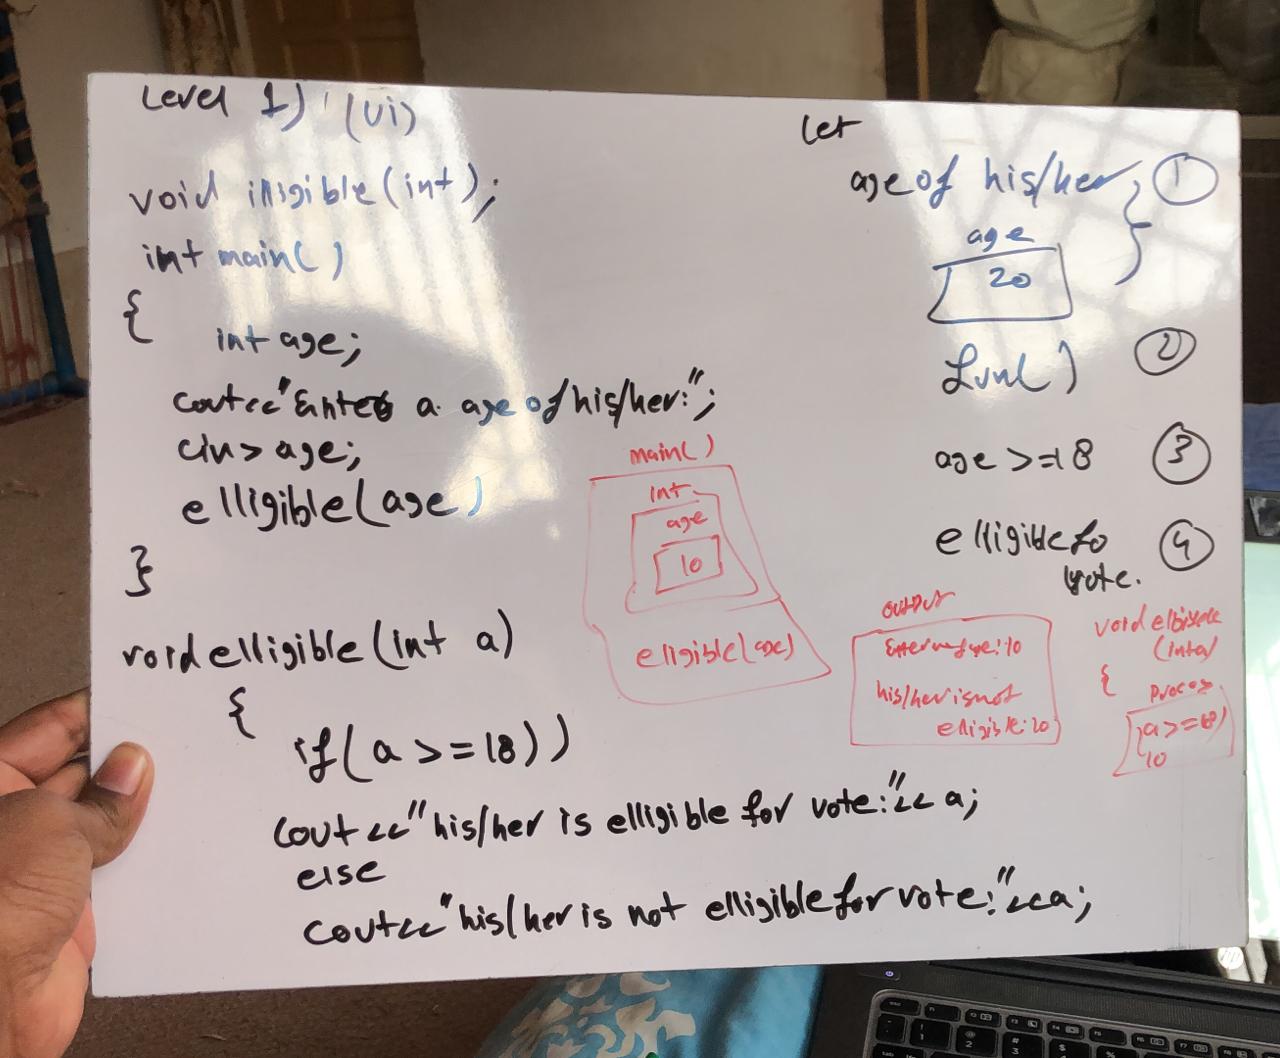 Level 1) (vi)
void illigible(int);
int main()
{
int age;
cout<<"Enter a age of his/her:";
cin> age;
elligible(age)
}
void elligible(int a)
{
if(a >= 18))
cout<<"his/her is elligible for vote:"<< a;
else
cout<<"his/her is not elligible for vote:"<<a;
let
age of his/her } 1
age
20
fun() 2
age >=18 3
elligible fo 4
vote.
main()
int
age
10
eligible(age)
output
age:10
his/her is not
elligible:20
void
(int a)
{
Proces
(a>=18)
10